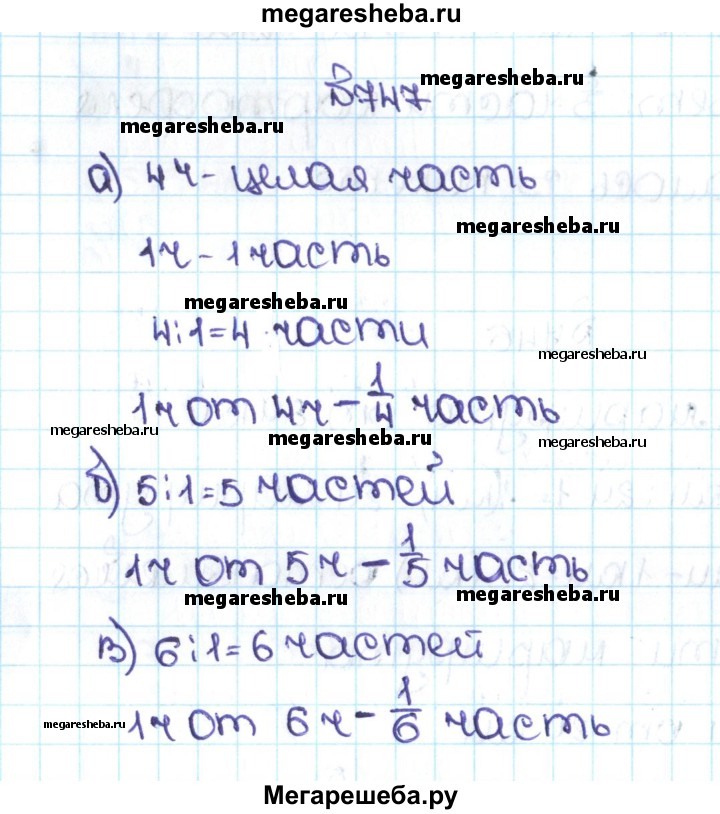 megaresheba.ru
В747 megaresheba.ru
megaresheba.ru
а) 4ч - целая часть
megaresheba.ru
1ч - 1 часть
megaresheba.ru
4:1=4 части
megaresheba.ru
1ч от 4ч - 1/4 часть
megaresheba.ru
megaresheba.ru
megaresheba.ru
б) 5:1=5 частей
1ч от 5ч - 1/5 часть
megaresheba.ru
megaresheba.ru
в) 6:1=6 частей
1ч от 6ч - 1/6 часть
megaresheba.ru
Мегарешеба.ру